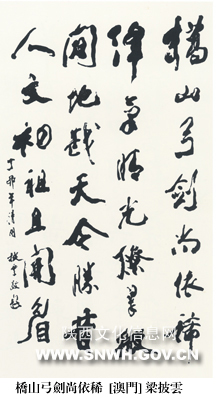 橋山弓劍尚依稀
氣晴光翠
闢地戡天今勝昔
人文初祖且開眉
丁卯年清明 披雲敬題
陕西文化信息网
WWW.SNWH.GOV.CN
橋山弓劍尚依稀 [澳門] 梁披雲